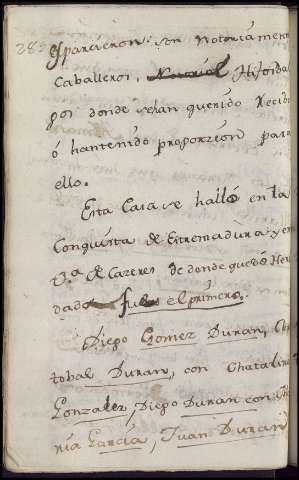 esparcieron: son notoriamen
Caballeros, Hijosdal
gos donde sean querido Recibi
ó hantenido proporzion para
ello.
Esta Casa se halló en la
Conquista de Estremadura y en
V.ª de Cazeres, de donde
dado el primero.
Diego Gomez Duran,
tobal Duran, con Chatalin
Gonzalez, Diego Duran con
ria Garcia, Juan Duran